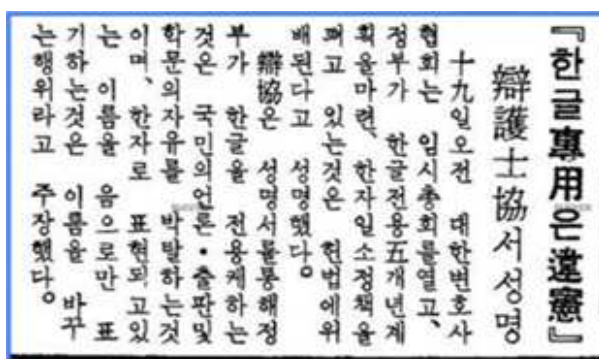 『한글專用은違憲』
辯護士協서성명
十九일오전 대한변호사
협회는 임시총회를열고、
정부가 한글전용五개년계
획을마련、한자일소정책을
펴고 있는것은 헌법에위
배된다고 성명했다。
辯協은 성명서를통해정
부가 한글을 전용케하는
것은 국민의언론・출판및
학문의자유를 박탈하는것
이며、한자로 표현되고있
는 이름을 음으로만 표
기하는것은 이름을 바꾸
는행위라고 주장했다。